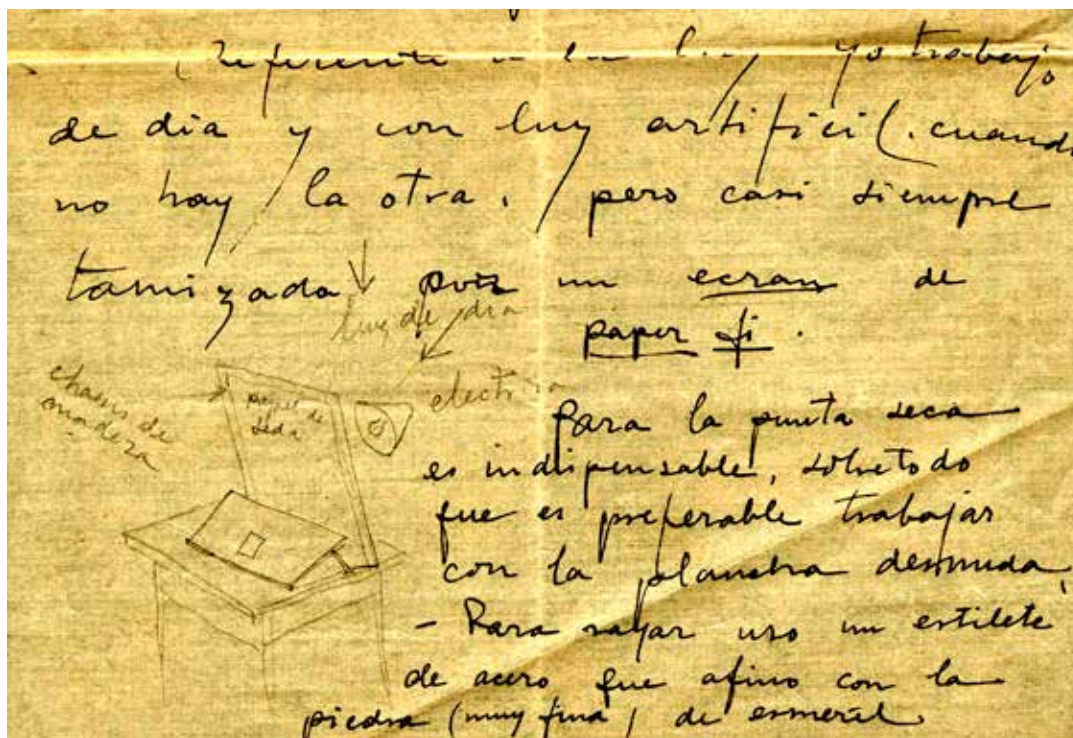 Referente a la luz yo trabajo
de dia y con luz artificil. cuando
no hay la otra, pero casi siempre
tamizada por un ecran de
paper fi.
luz de dia
electrica
chassis de
madera
papel de
seda
Para la punta seca
es indispensable, sobretodo
que es preferable trabajar
con la plancha desnuda,
- Para rayar uso un estilete
de acero que afino con la
piedra (muy fina) de esmeril